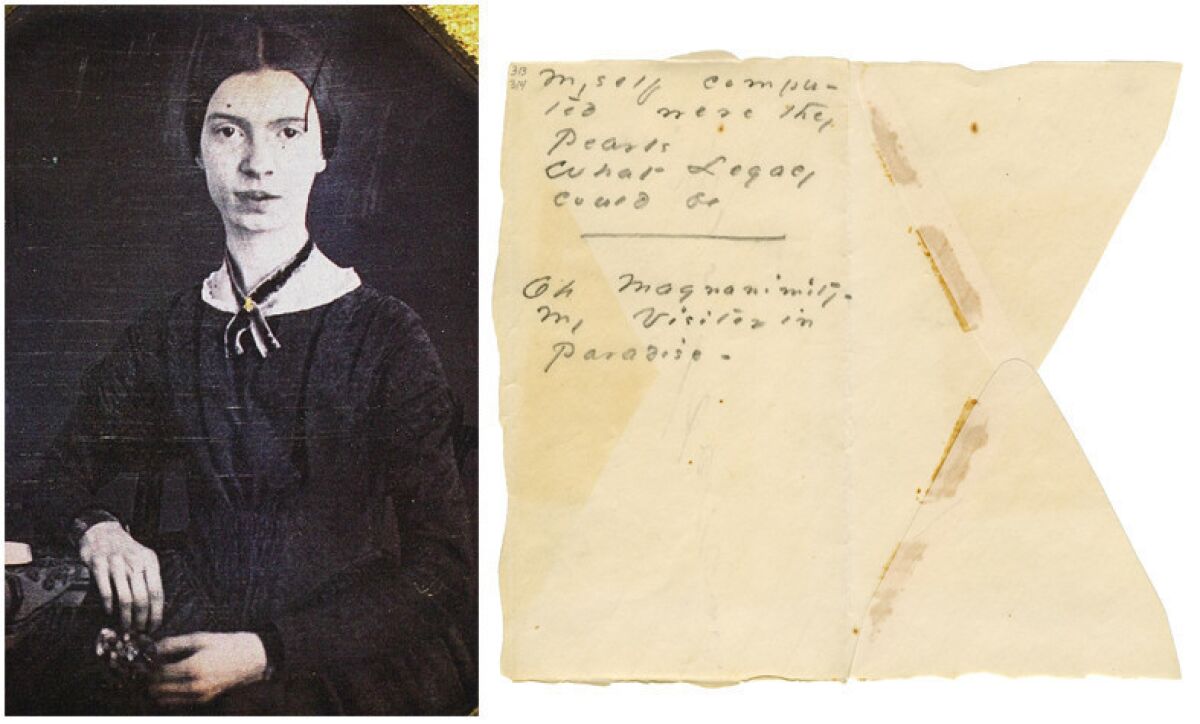 313
314
Myself compu-
ted were they
Pearls
What Legacy
could be
Oh Magnanimity-
My Visitor in
Paradise -